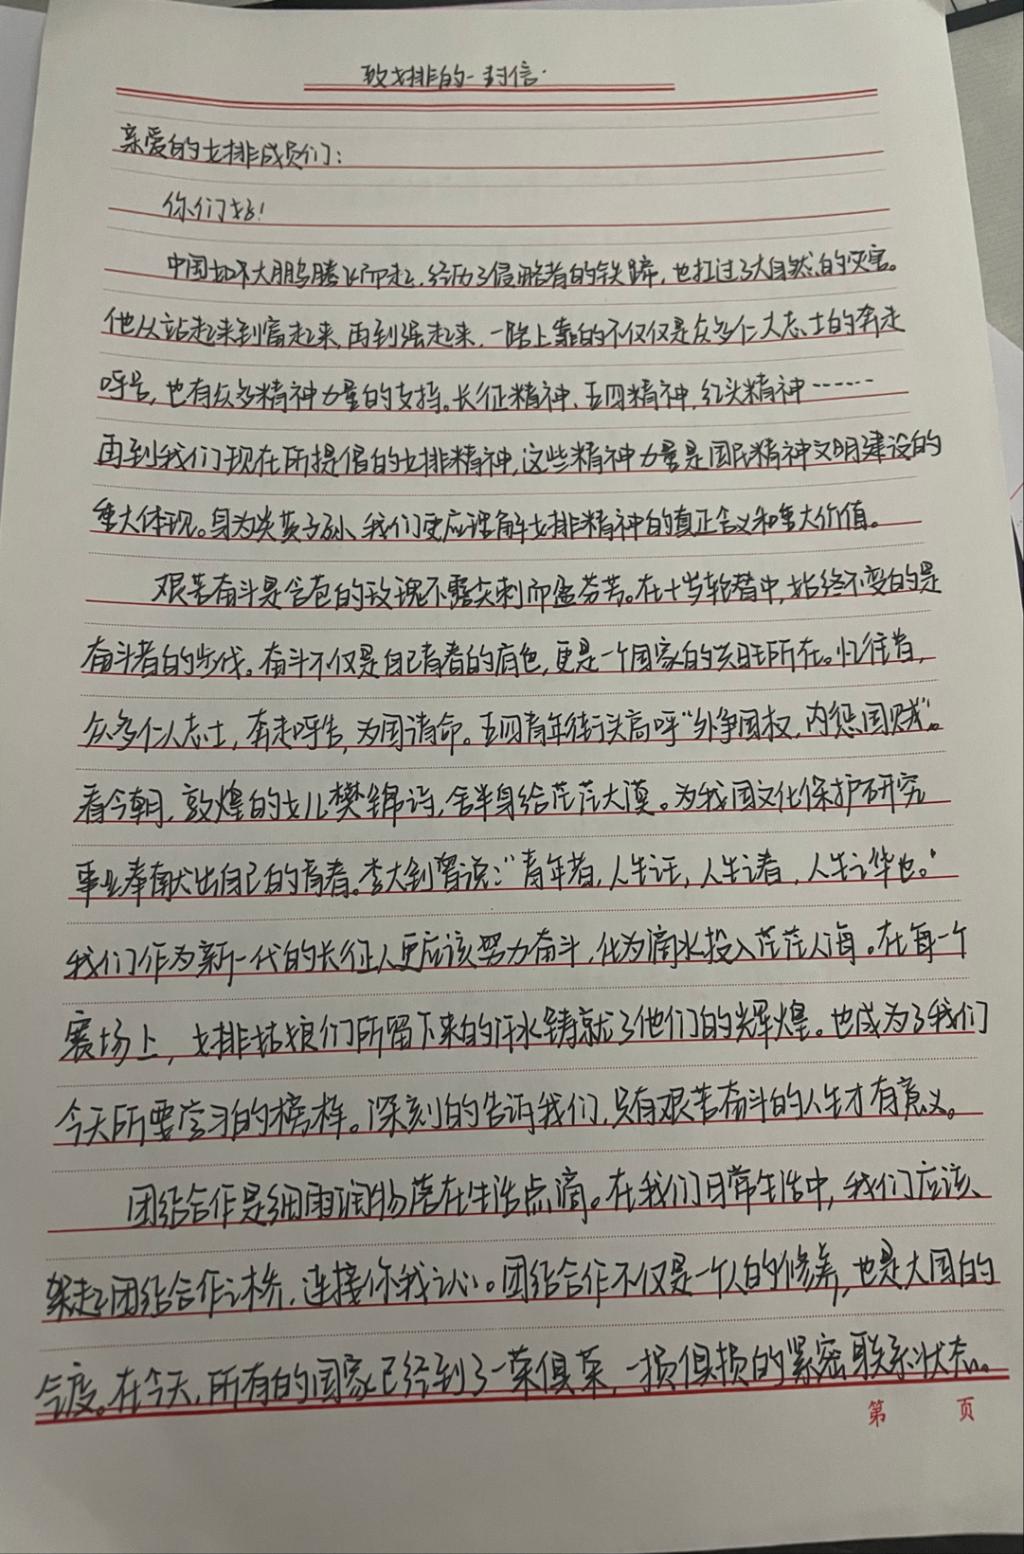 致女排的一封信
亲爱的女排成员们：
你们好！
中国如不大鹏腾飞而起，经历了侵略者的铁蹄，也扛过了大自然的灾害。
他从站起来到富起来，再到强起来，一路上靠的不仅仅是众多仁人志士的奔走
呼号，也有众多精神力量的支持。长征精神、五四精神，红头精神……
再到我们现在所提倡的女排精神，这些精神力量是国民精神文明建设的
重大体现。身为炎黄子孙、我们更应理解女排精神的真正含义和重大价值。
艰苦奋斗是含苞的玫瑰不露尖刺而盈芬芳。在十岁轮替中，始终不变的是
奋斗者的步伐。奋斗不仅是自己青春的底色，更是一个国家的兴旺所在。忆往昔，
众多仁人志士，奔走呼告，为国请命。五四青年街头高呼“外争国权，内惩国贼”。
看今朝，敦煌的女儿樊锦诗，舍半身给茫茫大漠。为我国文化保护研究
事业奉献出自己的青春。李大钊曾说：“青年者，人生之王，人生之春，人生之华也。”
我们作为新一代的长征人更应该努力奋斗，化为滴水投入茫茫人海。在每一个
赛场上，女排姑娘们所留下来的汗水铸就了他们的辉煌。也成为了我们
今天所要学习的榜样。深刻的告诉我们，只有艰苦奋斗的人生才有意义。
团结合作是细雨润物落在生活点滴。在我们日常生活中，我们应该、
架起团结合作之桥，连接你我之心。团结合作不仅是一个人的修养，也是大国的
气度。在今天，所有的国家已经到了一荣俱荣，一损俱损的紧密联系状态。
第 页